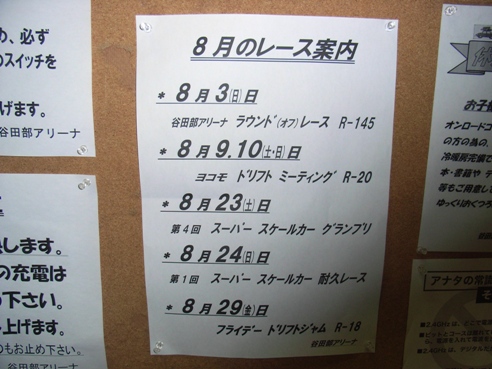 め、必ず
のスイッチを
げます。
谷田部アリーナ
します。
の充電は
下さい。
し上げます。
もお止め下さい。
部アリーナ
8月のレース案内
* 8月3(日)日
谷田部アリーナ ラウンド(オフ)レース R-145
* 8月9.10(土・日)日
ヨコモ ドリフト ミーティング R-20
* 8月23(土)日
第4回 スーパー スケールカー グランプリ
* 8月24(日)日
第1回 スーパー スケールカー 耐久レース
* 8月29(金)日
フライデー ドリフトジャム R-18
谷田部アリーナ
お子
オンロードコ
の方の為の、
冷暖房完備で
本・書籍や
等もご用意し
ゆっくりおくつろ
アナタの常備
■2.4GHzは、
■2.4GHzは、デジタル